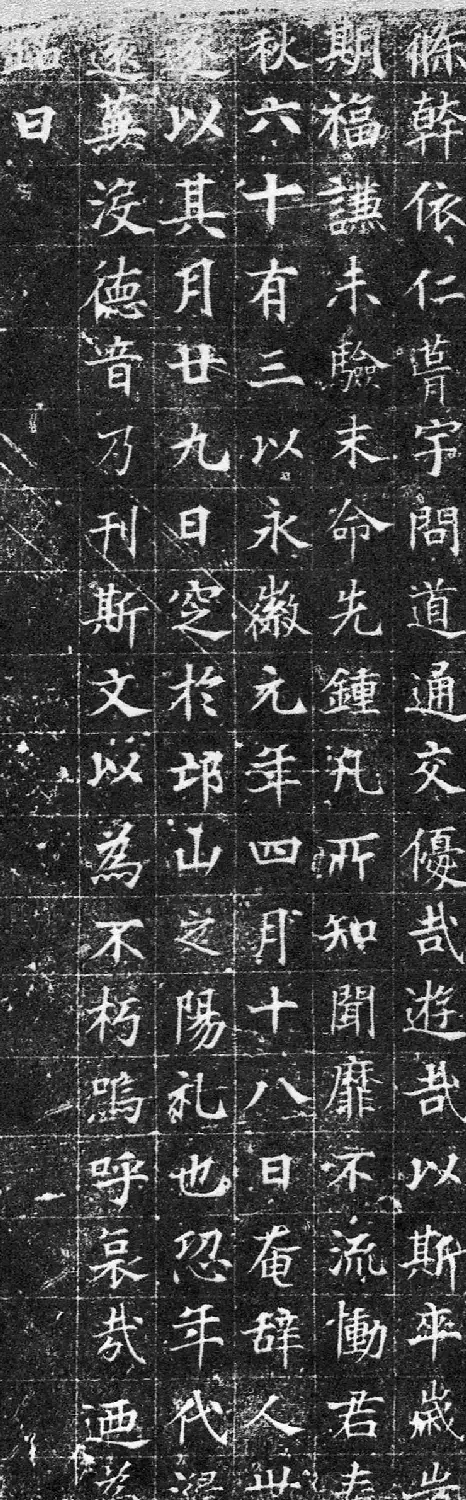 幹依仁葺宇問道通交優哉遊哉以斯卒歲
期福謙未驗末命先鍾凡所知聞靡不流慟君春
秋六十有三以永徽元年四月十八日奄辞人世
遂以其月廿九日窆於邙山之陽礼也恐年代
遠蕪没德音乃刊斯文以為不朽嗚呼哀哉迺為
銘曰